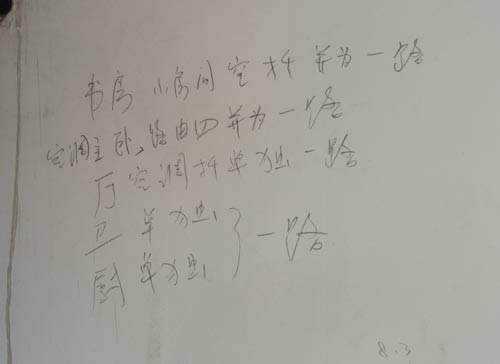 书房 小房间 空 并为一路
空调主卧、 并为一路
厅空调 单独一路
卫 单独
厨 单独 } 一路
8.3